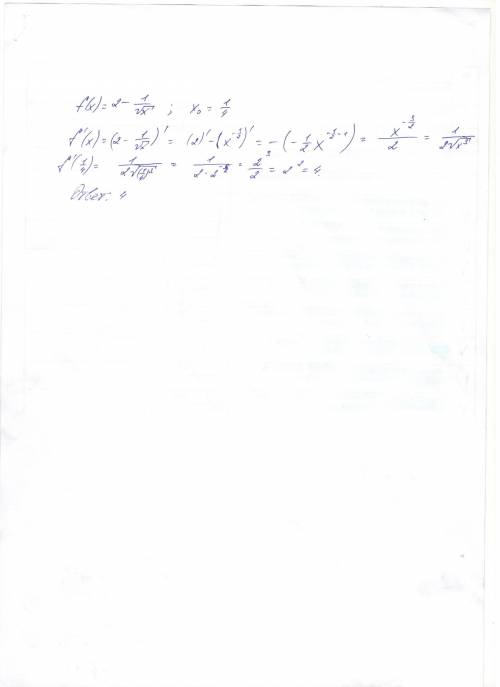 f(x) = 2 - 1/√x ; x₀ = 1/4
f'(x) = (2 - 1/√x)' = (2)' - (x^(-1/2))' = -(-1/2 x^(-1/2-1)) = x^(-3/2)/2 = 1/(2√x³)
f'(1/4) = 1/(2√(1/4)³) = 1/(2·2^(-3)) = 2³/2 = 2² = 4.
Ответ: 4